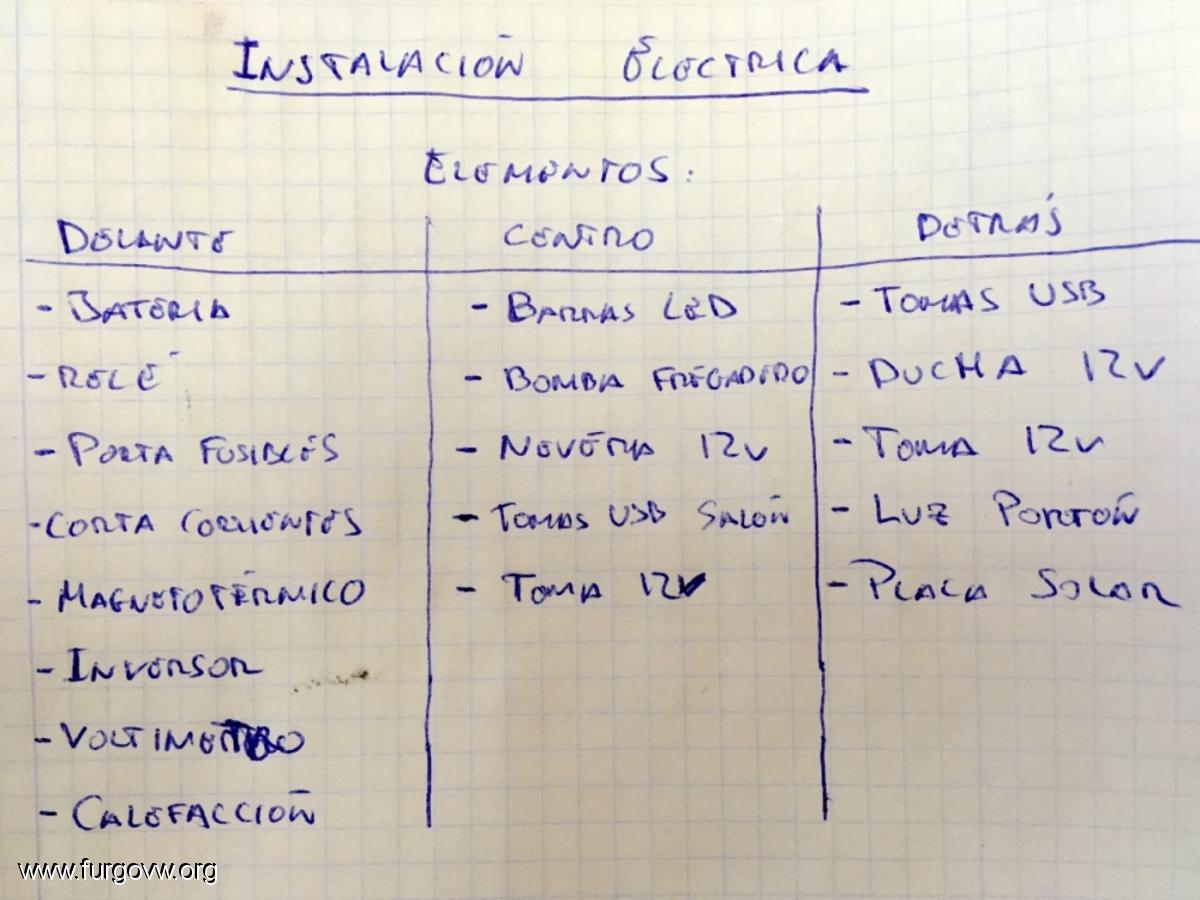 INSTALACIÓN ELECTRICA
ELEMENTOS:
DELANTE CENTRO DETRÁS
- BATERIA - BARRAS LED - TOMAS USB
- RELÉ - BOMBA FREGADERO - DUCHA 12V
- PORTA FUSIBLES - NEVERA 12V - TOMA 12V
- CORTA CORRIENTES - TOMAS USB SALÓN - LUZ PORTÓN
- MAGNETOTÉRMICO - TOMA 12V - PLACA SOLAR
- INVERSOR
- VOLTIMETRO
- CALEFACCIÓN
www.furgovw.org